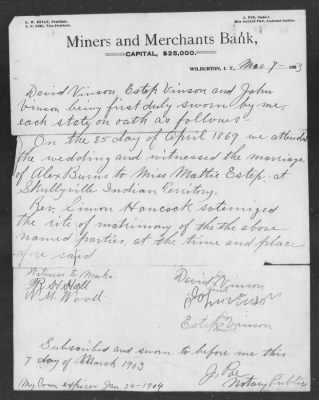 G. W. BRYAN, President.
J. POE, Cashier.
Miners and Merchants Bank,
CAPITAL, $25,000.
WILBURTON, I. T., Mar 7 - 1903
David Vinson, Estep Vinson and John
Vinson being first duly sworn by me,
each state on oath as follows
On the 25 day of April 1869 we attended
the wedding and witnessed the marriage
of Alex Burns to Miss Mattie Estep. at
Skullyville Indian Territory.
Rev. Simon Hancock solemnized
the rite of matrimony of the the above
named parties, at the time and place
afore said
Witness to Marks.
Hall
W. M. Wood
David Vinson
John Vinson
Estep Vinson
Subscribed and sworn to before me this
7 day of March 1903
J. Poe
Notary Public
My Com expires Jan. 24-1904